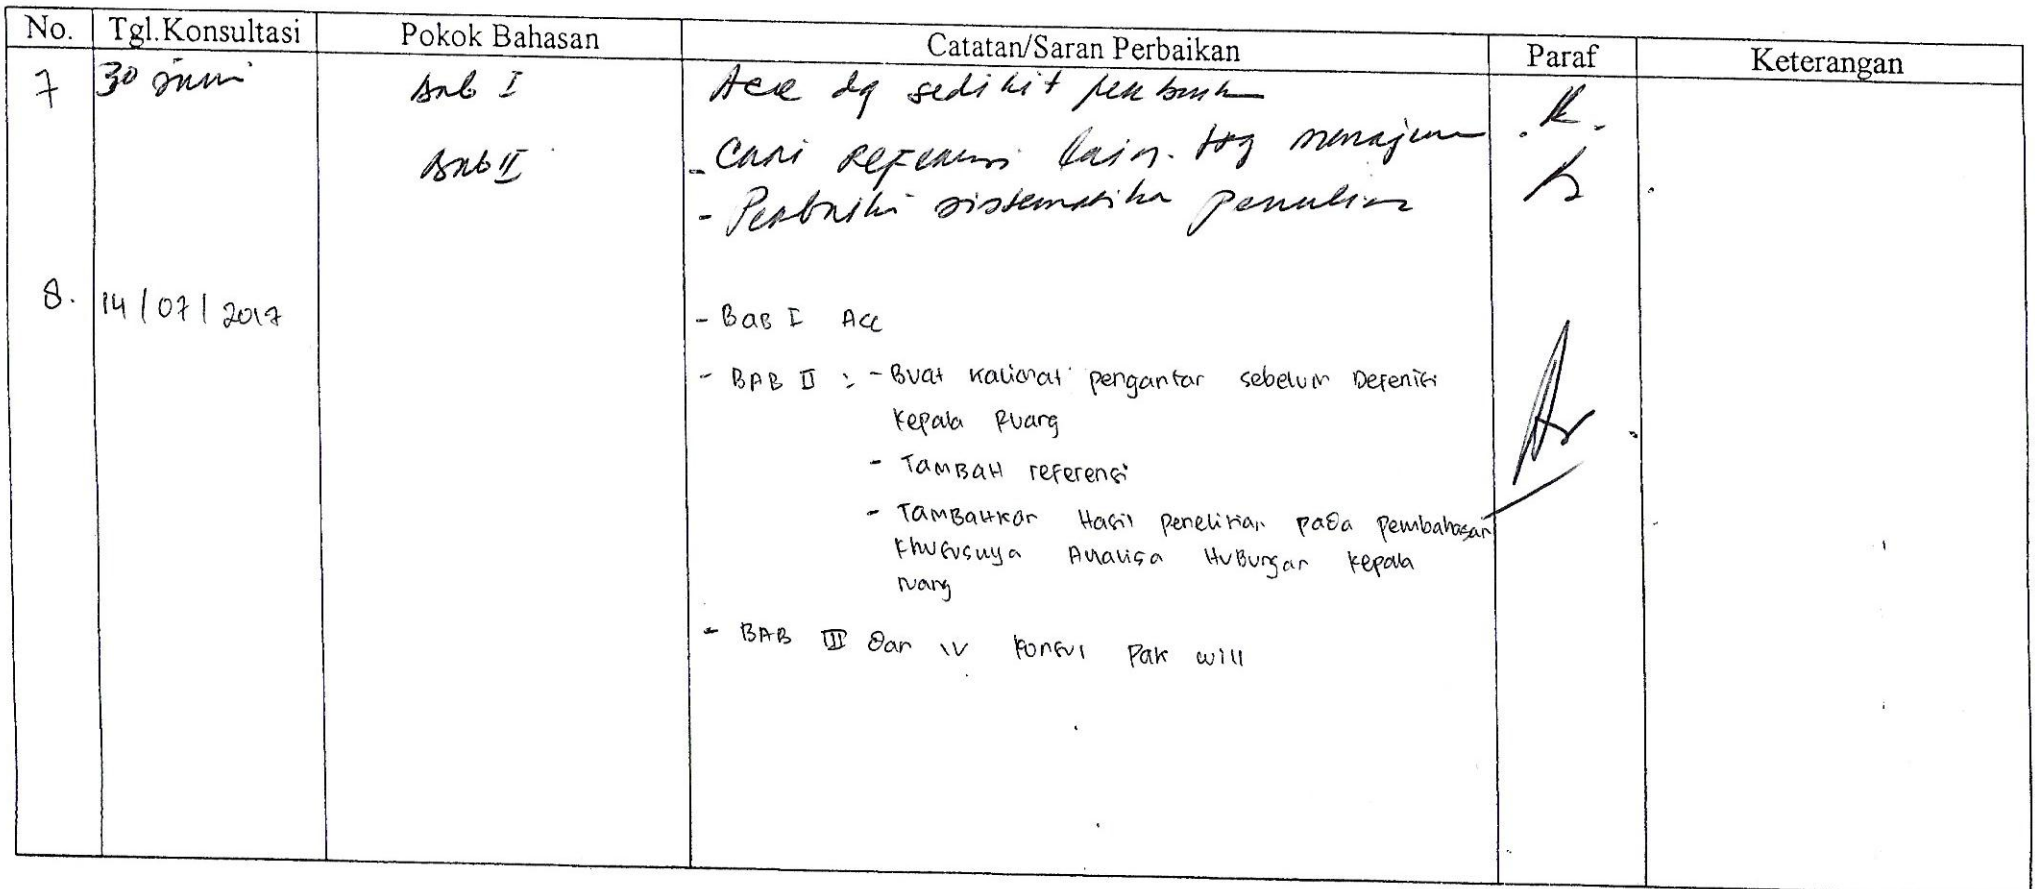 No. Tgl.Konsultasi Pokok Bahasan Catatan/Saran Perbaikan Paraf Keterangan
7 30 Juni Bab I Acc dg sedikit
Bab II - Cari referensi lain ttg manajemen
- Perbaiki sistematika penulisan
8. 14/07/2017
- Bab I Acc
- BAB II : - Buat kalimat pengantar sebelum Defenisi
Kepala Ruang
- Tambah referensi
- Tambahkan Hasil penelitian pada pembahasan
khususnya Analisa Hubungan kepala
ruang
- BAB III dan IV konsul Pak will